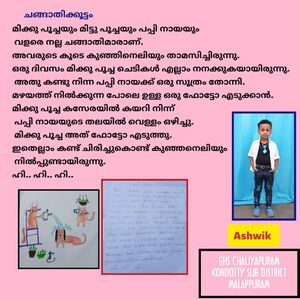 ചങ്ങാതിക്കൂട്ടം
മിക്കു പൂച്ചയും മിട്ടു പൂച്ചയും പപ്പി നായയും
വളരെ നല്ല ചങ്ങാതിമാരാണ്.
അവരുടെ കൂടെ കുഞ്ഞനെലിയും താമസിച്ചിരുന്നു.
ഒരു ദിവസം മിക്കു പൂച്ച ചെടികൾ എല്ലാം നനക്കുകയായിരുന്നു.
അതു കണ്ടു നിന്ന പപ്പി നായക്ക് ഒരു സൂത്രം തോന്നി.
മഴയത്ത് നിൽക്കുന്ന പോലെ ഉള്ള ഒരു ഫോട്ടോ എടുക്കാൻ.
മിക്കു പൂച്ച കസേരയിൽ കയറി നിന്ന്
പപ്പി നായയുടെ തലയിൽ വെള്ളം ഒഴിച്ചു.
മിക്കു പൂച്ച അത് ഫോട്ടോ എടുത്തു.
ഇതെല്ലാം കണ്ട് ചിരിച്ചുകൊണ്ട് കുഞ്ഞനെലിയും
നിൽപ്പുണ്ടായിരുന്നു.
ഹി.. ഹി.. ഹി..
Ashwik
GHS CHALIYAPURAM
KONDOTTY SUB DISTRICT
MALAPPURAM